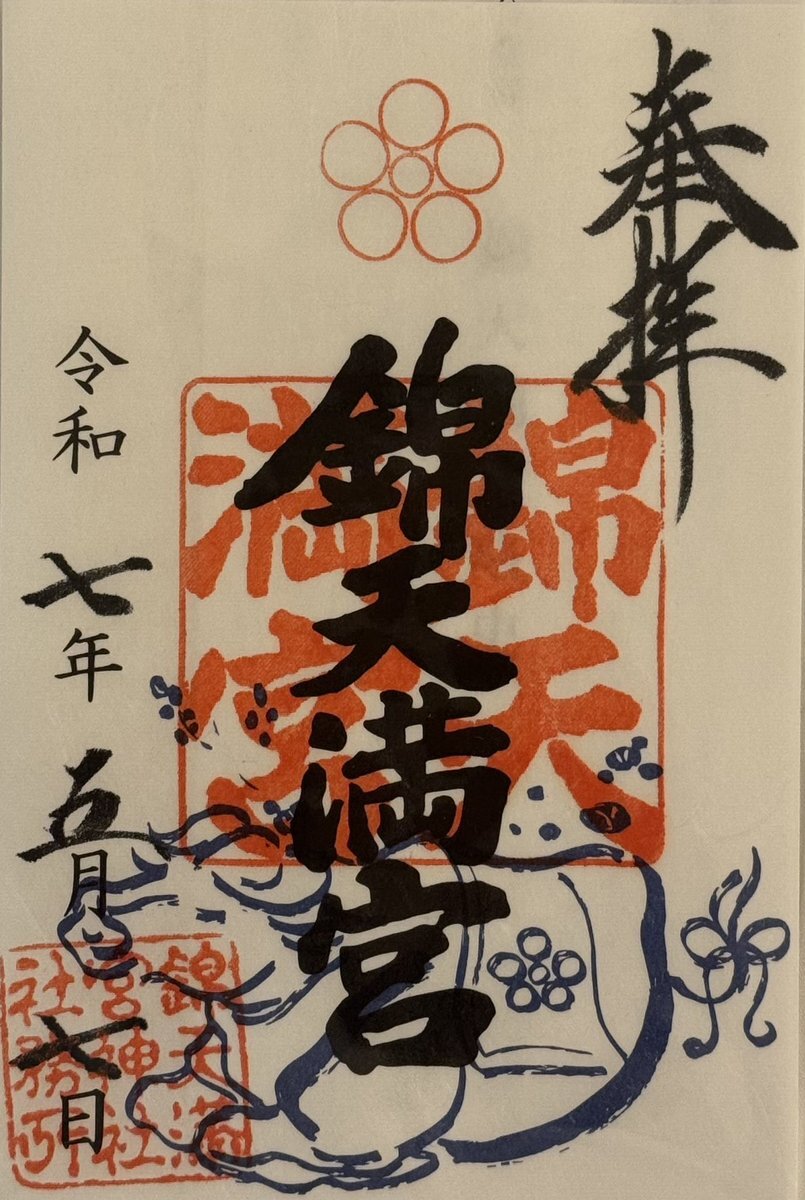 奉拝
錦天満宮
錦天
満宮
令和七年五月七日
錦天満
宮神社
社務所